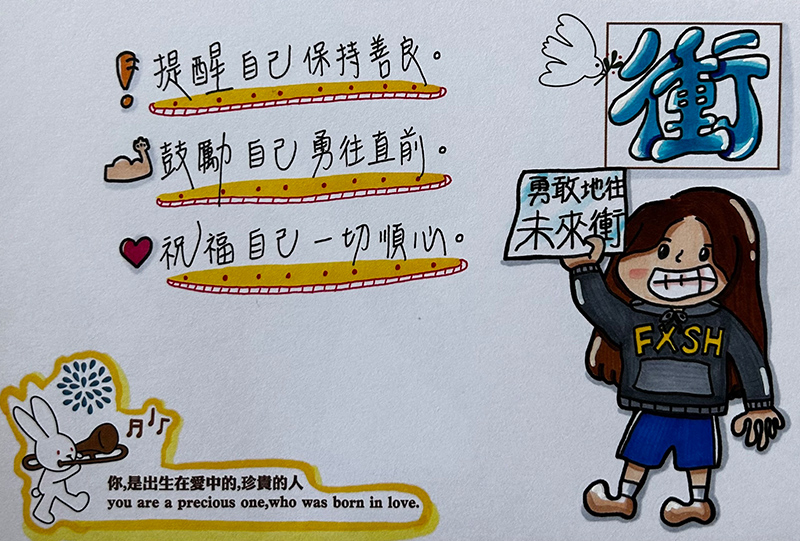 提醒自己保持善良。
鼓勵自己勇往直前。
祝福自己一切順心。
衝
勇敢地往
未來衝
FXSH
你,是出生在愛中的,珍貴的人
you are a precious one,who was born in love.